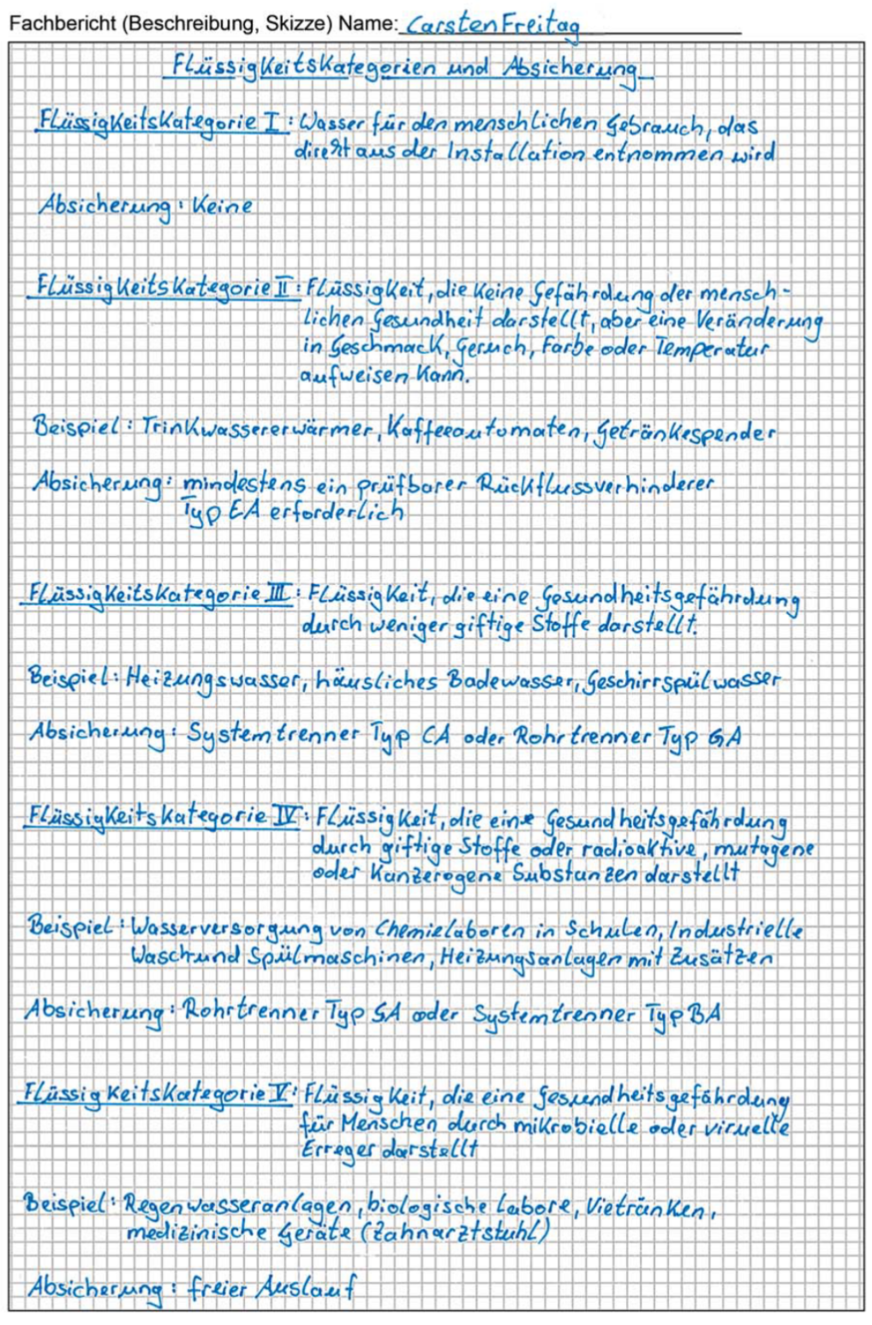 Fachbericht (Beschreibung, Skizze) Name: Carsten Freitag
Flüssigkeitskategorien und Absicherung
Flüssigkeitskategorie I: Wasser für den menschlichen Gebrauch, das
direkt aus der Installation entnommen wird
Absicherung: Keine
Flüssigkeitskategorie II: Flüssigkeit, die keine Gefährdung der mensch-
lichen Gesundheit darstellt, aber eine Veränderung
in Geschmack, Geruch, Farbe oder Temperatur
aufweisen kann.
Beispiel: Trinkwassererwärmer, Kaffeeautomaten, Getränkespender
Absicherung: mindestens ein prüfbarer Rückflussverhinderer
Typ EA erforderlich
Flüssigkeitskategorie III: Flüssigkeit, die eine Gesundheitsgefährdung
durch weniger giftige Stoffe darstellt.
Beispiel: Heizungswasser, häusliches Badewasser, Geschirrspülwasser
Absicherung: Systemtrenner Typ CA oder Rohrtrenner Typ GA
Flüssigkeitskategorie IV: Flüssigkeit, die eine Gesundheitsgefährdung
durch giftige Stoffe oder radioaktive, mutagene
oder kanzerogene Substanzen darstellt
Beispiel: Wasserversorgung von Chemielaboren in Schulen, Industrielle
Waschund Spülmaschinen, Heizungsanlagen mit Zusätzen
Absicherung: Rohrtrenner Typ GA oder Systemtrenner Typ BA
Flüssigkeitskategorie V: Flüssigkeit, die eine Gesundheitsgefährdung
für Menschen durch mikrobielle oder viruelle
Erreger darstellt
Beispiel: Regenwasseranlagen, biologische Labore, Vietränken,
medizinische Geräte (Zahnarztstuhl)
Absicherung: freier Auslauf